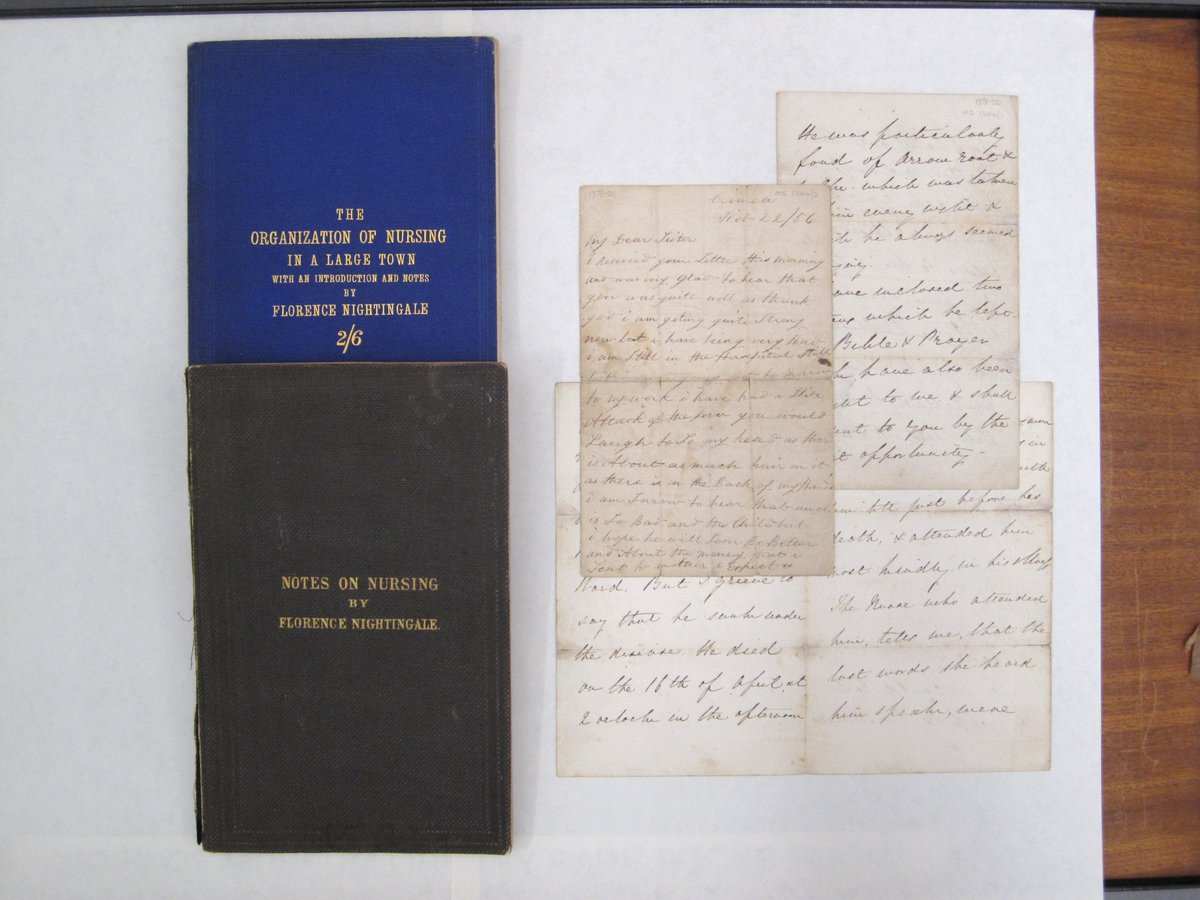 THE
ORGANIZATION OF NURSING
IN A LARGE TOWN
WITH AN INTRODUCTION AND NOTES
BY
FLORENCE NIGHTINGALE
2/6
NOTES ON NURSING
BY
FLORENCE NIGHTINGALE.
1978-321
Crimea
Feb 22/56
My Dear Sister
i received your Letter this morning
and was very glad to hear that
you was quite well as thank
god i am geting quite Strong
now but i have being very bad
i am Still in the Hospital
to my work i have had a
Attack of the fever you would
Laugh to Se my head as there
is About as much hair on it
as there is on the Back of my Hand
i am to hear that
is So Bad and the Child but
i hope he will Soon Be Better
and About the money that i
Sent to mother i Expect
1978-321
He was particularly
fond of Arrow root &
which was taken
every night &
he always seemed
inclosed two
which he left
Bible & Prayer
have also been
to me & shall
to you by the
opportunity -
Word. But I grieve to
say that he sunk under
the disease. He died
on the 16th of April, at
2 oclock in the afternoon
till just before his
death, & attended him
most kindly in his
The Nurse who attended
him, tells me, that the
last words she heard
him speak, were